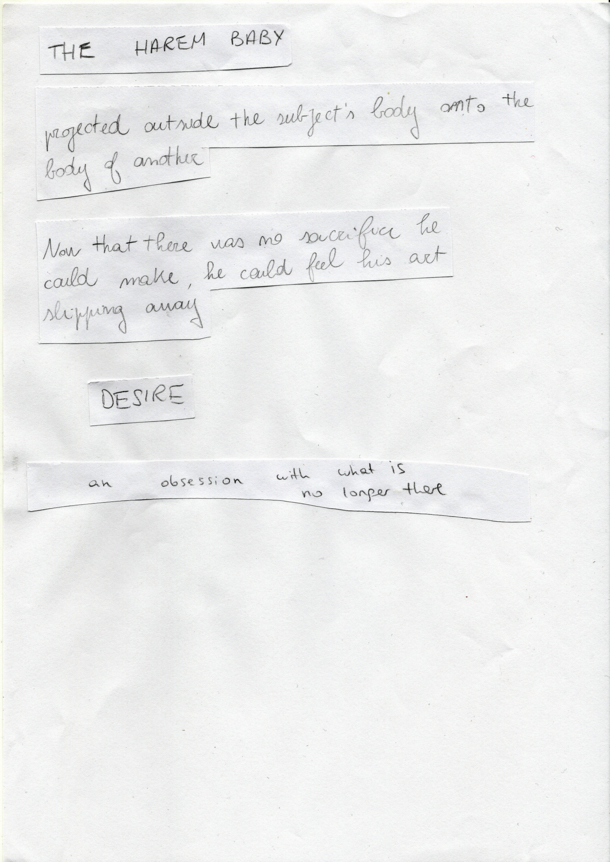 THE HAREM BABY
projected outside the subject's body onto the
body of another
Now that there was no sacrifice he
could make, he could feel his art
slipping away
DESIRE
an obsession with what is
no longer there